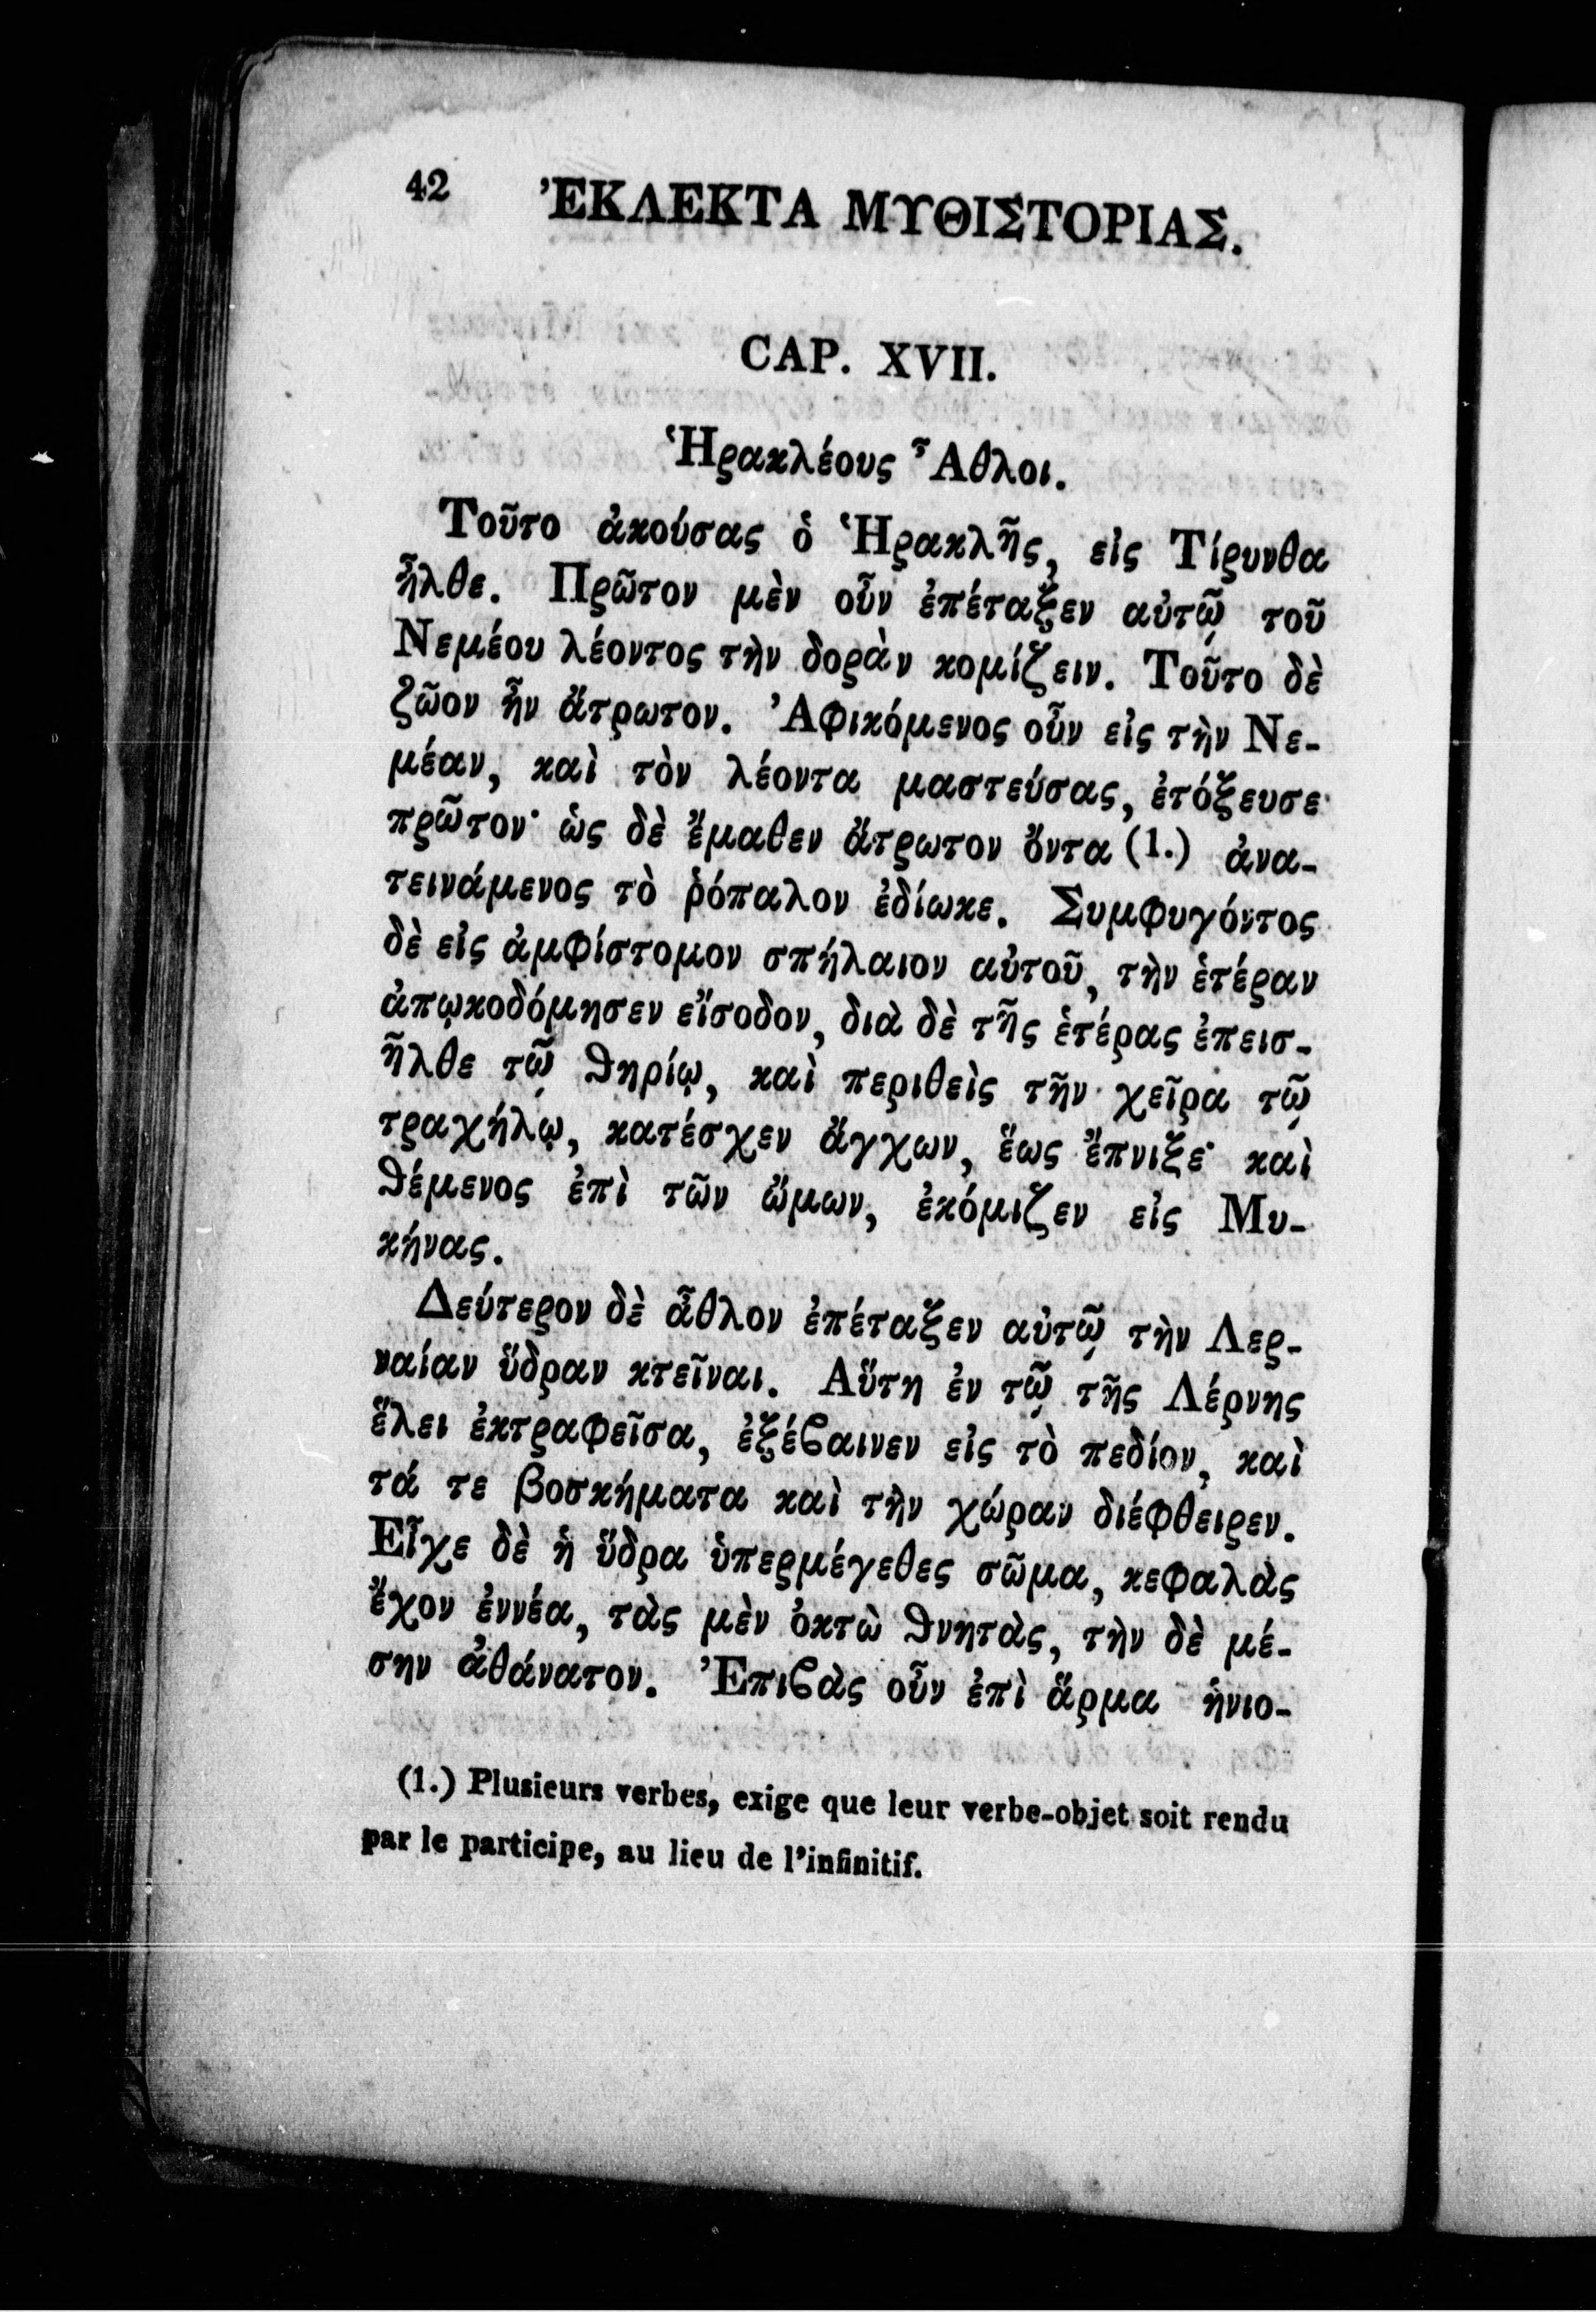 42 ἘΚΛΕΚΤΑ ΜΥΘΙΣΤΟΡΙΑΣ.
CAP. XVII.
Ἡρακλέους Ἆθλοι.
Τοῦτο ἀκούσας ὁ Ἡρακλῆς, εἰς Τίρυνθα
ἦλθε. Πρῶτον μὲν οὖν ἐπέταξεν αὐτῷ τοῦ
Νεμέου λέοντος τὴν δορὰν κομίζειν. Τοῦτο δὲ
ζῶον ἦν ἄτρωτον. Ἀφικόμενος οὖν εἰς τὴν Νε-
μέαν, καὶ τὸν λέοντα μαστεύσας, ἐτόξευσε
πρῶτον· ὡς δὲ ἔμαθεν ἄτρωτον ὄντα (1.) ἀνα-
τεινάμενος τὸ ῥόπαλον ἐδίωκε. Συμφυγόντος
δὲ εἰς ἀμφίστομον σπήλαιον αὐτοῦ, τὴν ἑτέραν
ἀπῳκοδόμησεν εἴσοδον, διὰ δὲ τῆς ἑτέρας ἐπεισ-
ῆλθε τῷ θηρίῳ, καὶ περιθεὶς τῆν χεῖρα τῷ
τραχήλῳ, κατέσχεν ἄγχων, ἕως ἔπνιξε· καὶ
θέμενος ἐπὶ τῶν ὤμων, ἐκόμιζεν εἰς Μυ-
κήνας.
Δεύτερον δὲ ἆθλον ἐπέταξεν αὐτῷ τὴν Λερ-
ναίαν ὕδραν κτεῖναι. Αὕτη ἐν τῷ τῆς Λέρνης
ἕλει ἐκτραφεῖσα, ἐξέϐαινεν εἰς τὸ πεδίον, καὶ
τά τε βοσκήματα καὶ τὴν χώραν διέφθειρεν.
Εἶχε δὲ ἡ ὕδρα ὑπερμέγεθες σῶμα, κεφαλὰς
ἔχον ἐννέα, τὰς μὲν ὀκτὼ θνητὰς, τὴν δὲ μέ-
σην ἀθάνατον. Ἐπιϐὰς οὖν ἐπὶ ἅρμα ἡνιο-
(1.) Plusieurs verbes, exige que leur verbe-objet soit rendu
par le participe, au lieu de l'infinitif.